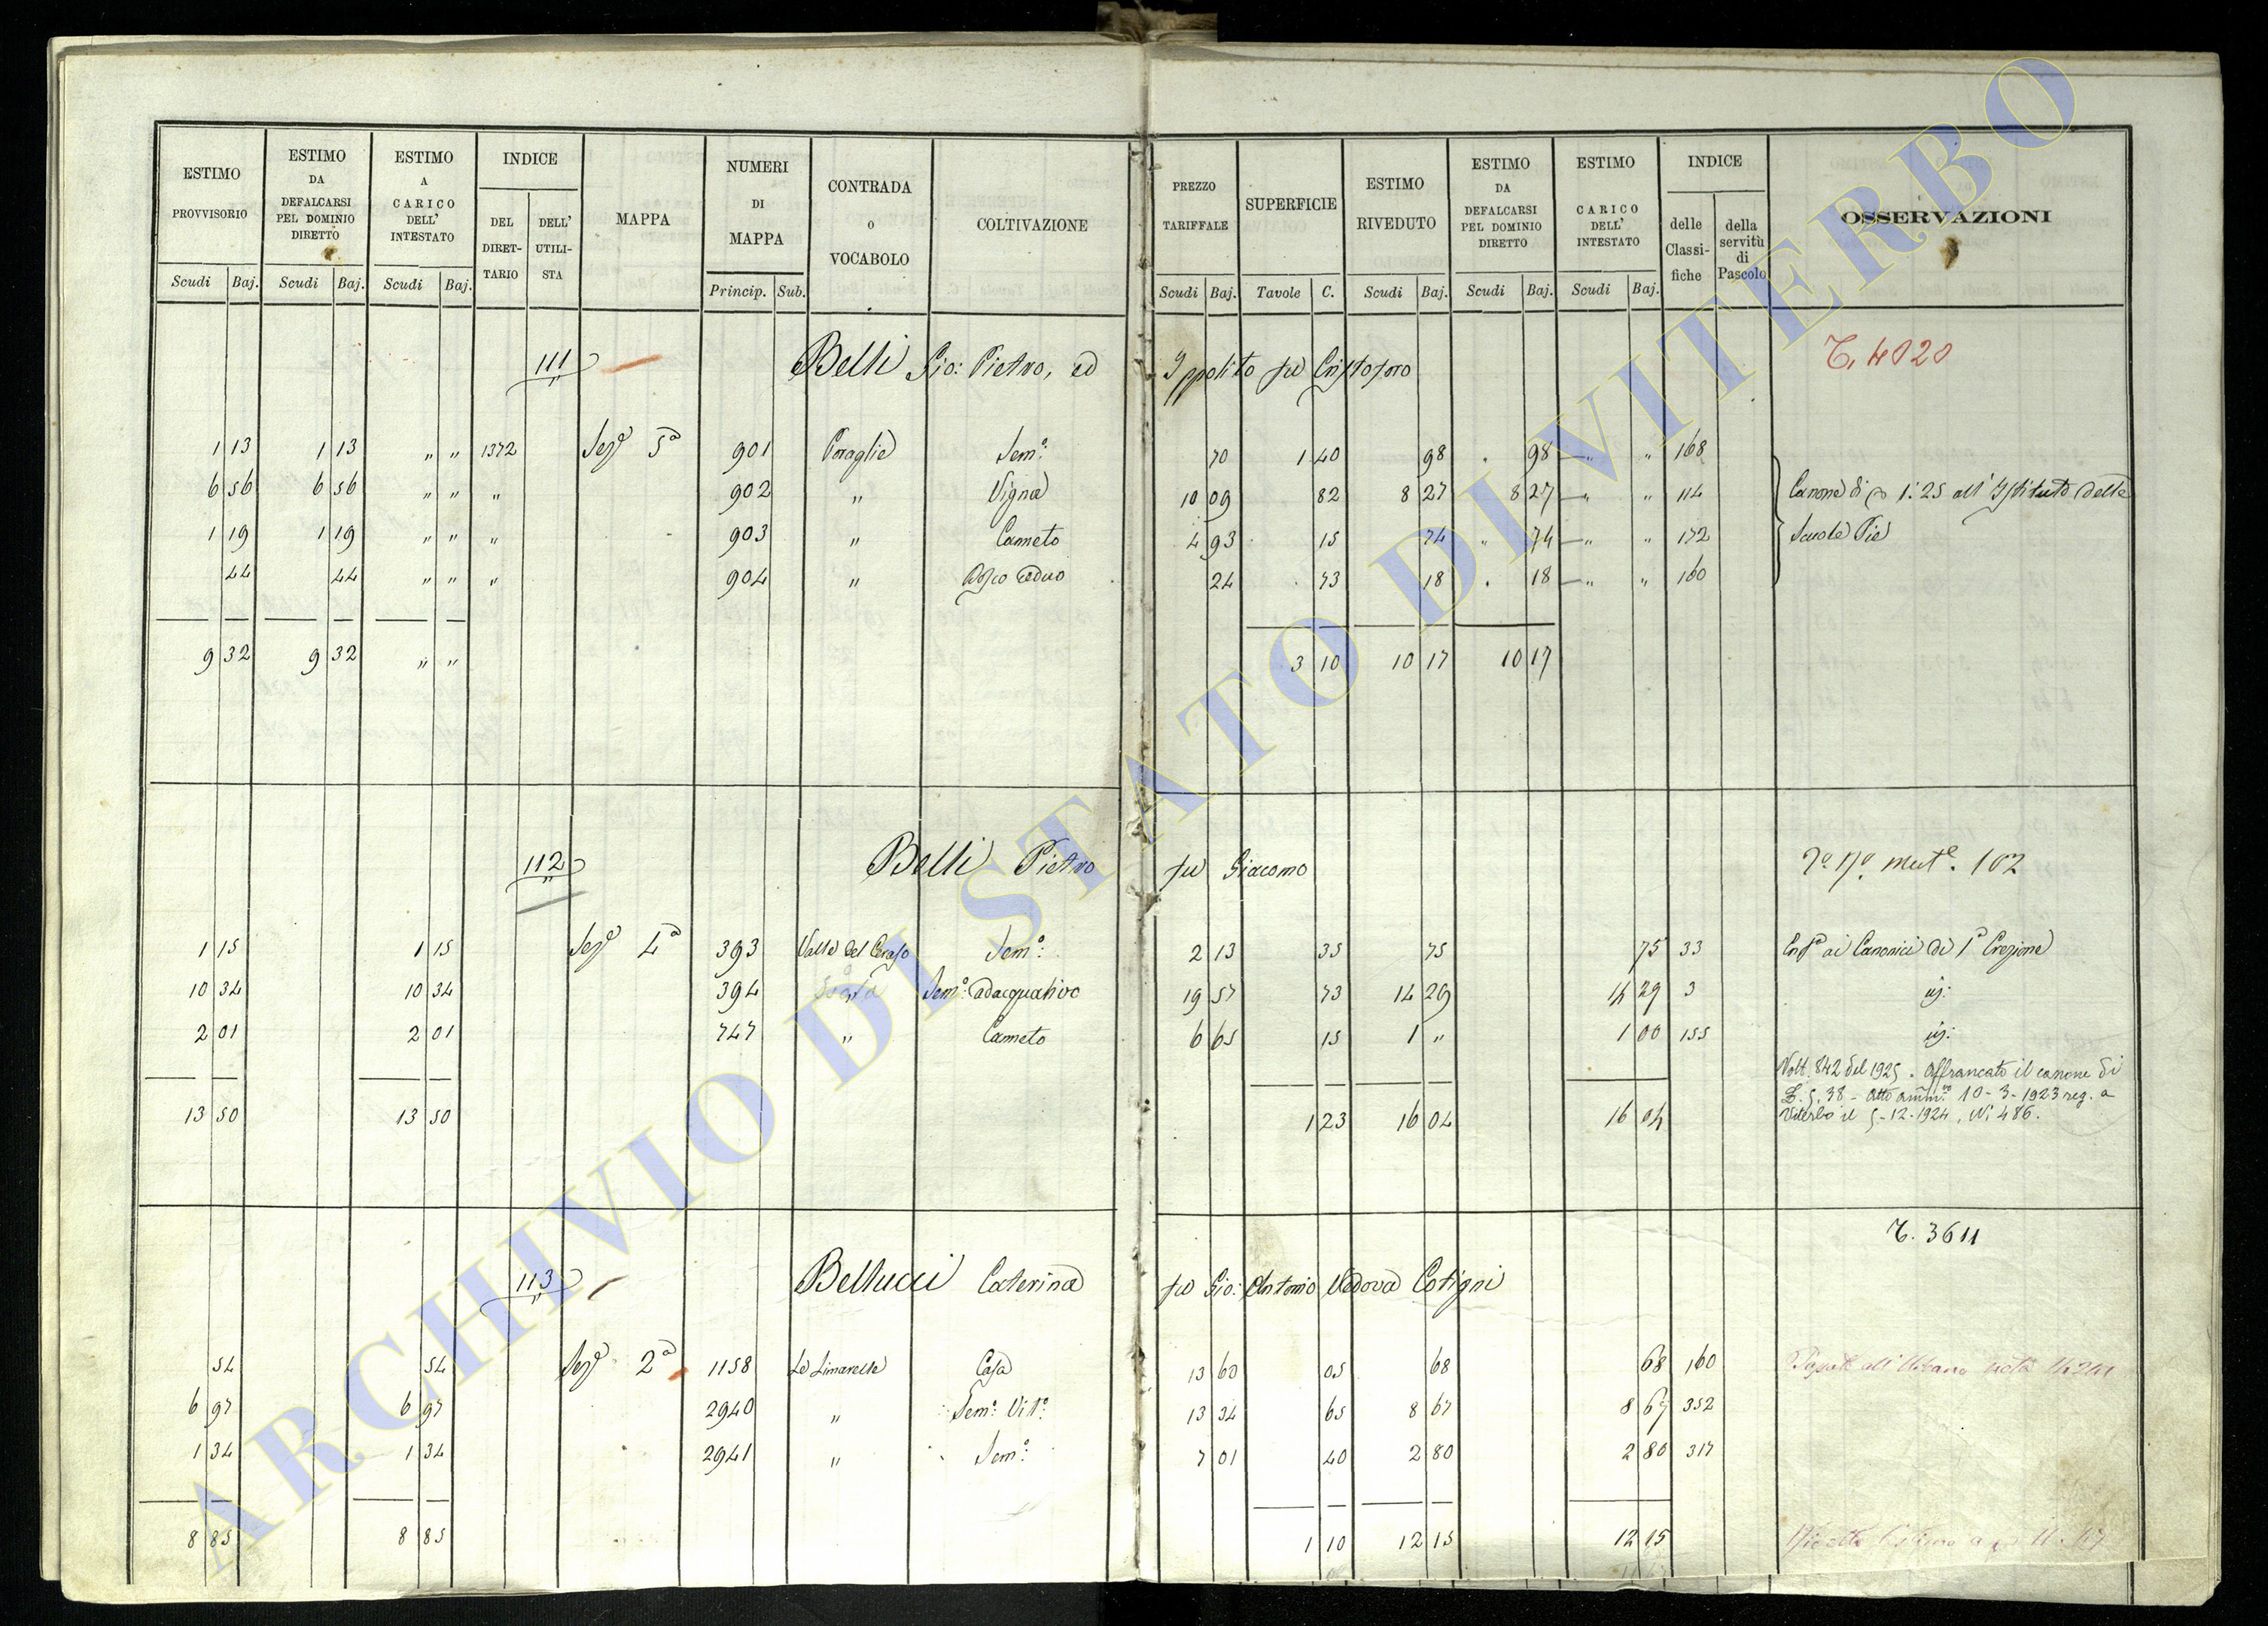 ESTIMO PROVVISORIO
ESTIMO DA DEFALCARSI PEL DOMINIO DIRETTO
ESTIMO A CARICO DELL' INTESTATO
INDICE
DEL DIRET-TARIO
DELL' UTILI-STA
MAPPA
NUMERI DI MAPPA
CONTRADA O VOCABOLO
COLTIVAZIONE
PREZZO TARIFFALE
SUPERFICIE
ESTIMO RIVEDUTO
ESTIMO DA DEFALCARSI PEL DOMINIO DIRETTO
ESTIMO CARICO DELL' INTESTATO
INDICE
delle Classi-fiche
della servitù di Pascolo
OSSERVAZIONI
Scudi Baj. Scudi Baj. Scudi Baj. Princip. Sub. Scudi Baj. Tavole C. Scudi Baj. Scudi Baj. Scudi Baj.
111 Belli Gio: Pietro, ed Ippolito fu Cristoforo T. 4020
1 13 1 13 " " 1372 Sez.e 5a 901 Sem.o: 70 1 40 98 " 98 " " 168
6 56 6 56 " " " 902 " Vigna 10 09 82 8 27 8 27 " " 114 Canone di 1:25 all'Istituto delle
1 19 1 19 " " " 903 " Canneto 4 93 15 74 " 74 " " 172 Scuole Pie
44 44 " " " 904 " Bosco ceduo 24 73 18 " 18 " " 160
9 32 9 32 " " 3 10 10 17 10 17
112 Belli Pietro fu Giacomo 102
1 15 1 15 Sez.e 4a 393 Valle del Ceraso Sem.o: 2 13 35 75 75 33 ai Canonici di 1a Erezione
10 34 10 34 394 Sem.o: adacquativo 19 57 73 14 29 14 29 3
2 01 2 01 747 " Canneto 6 65 15 1 " 1 00 155
Volt. 842 del 1925. Affrancato il canone di
L. 5,38 - Atto amm.vo 10-3-1923 reg. a
Viterbo il 5-12-1924, N. 486.
13 50 13 50 1 23 16 04 16 04
T. 3611
113 Bellucci Caterina fu Gio: Antonio Vedova Cotigni
54 54 Sez.e 2a 1158 Le Limarelle Casa 13 60 05 68 68 160
6 97 6 97 2940 " Sem.o: Vit.o: 13 34 65 8 67 8 67 352
1 34 1 34 2941 " Sem.o: 7 01 40 2 80 2 80 317
8 85 8 85 1 10 12 15 12 15
ARCHIVIO DI STATO DI VITERBO